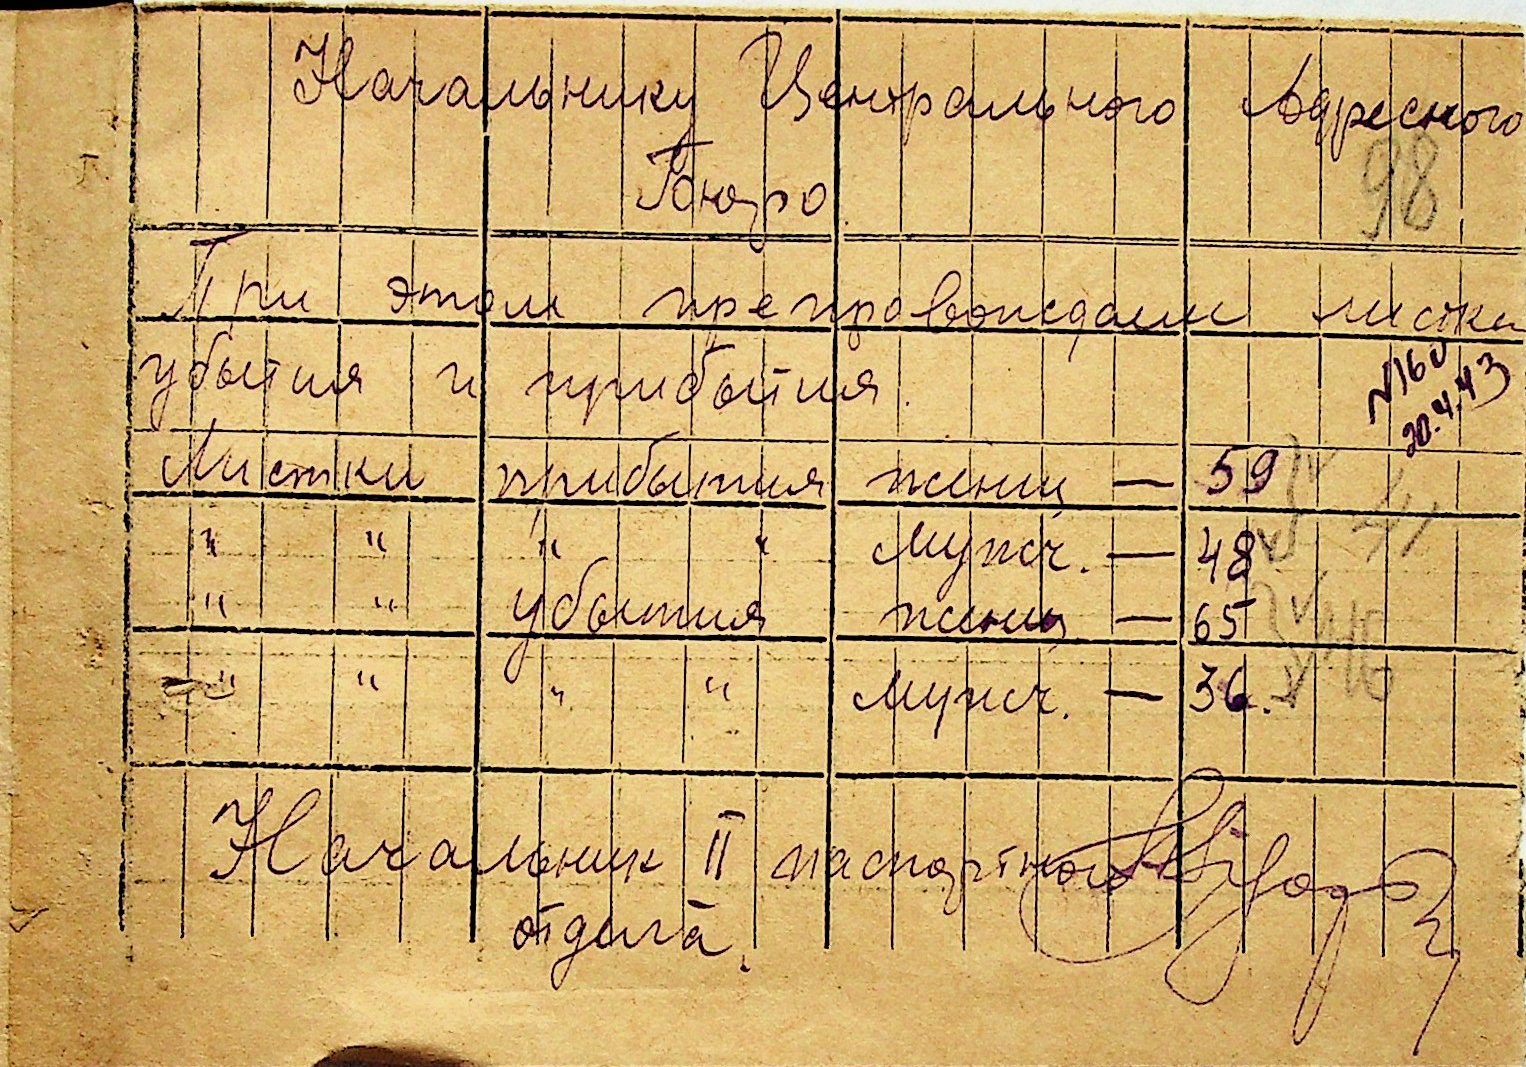 Начальнику Центрального Адресного
Бюро
98
При этом препровождаем листки
убытия и прибытия.
N160
20.4.43
Листки прибытия женщ — 59
" " " " мужч. — 48
" " убытия женщ — 65
" " " " мужч. — 36.
Начальник II паспортного
отдела.